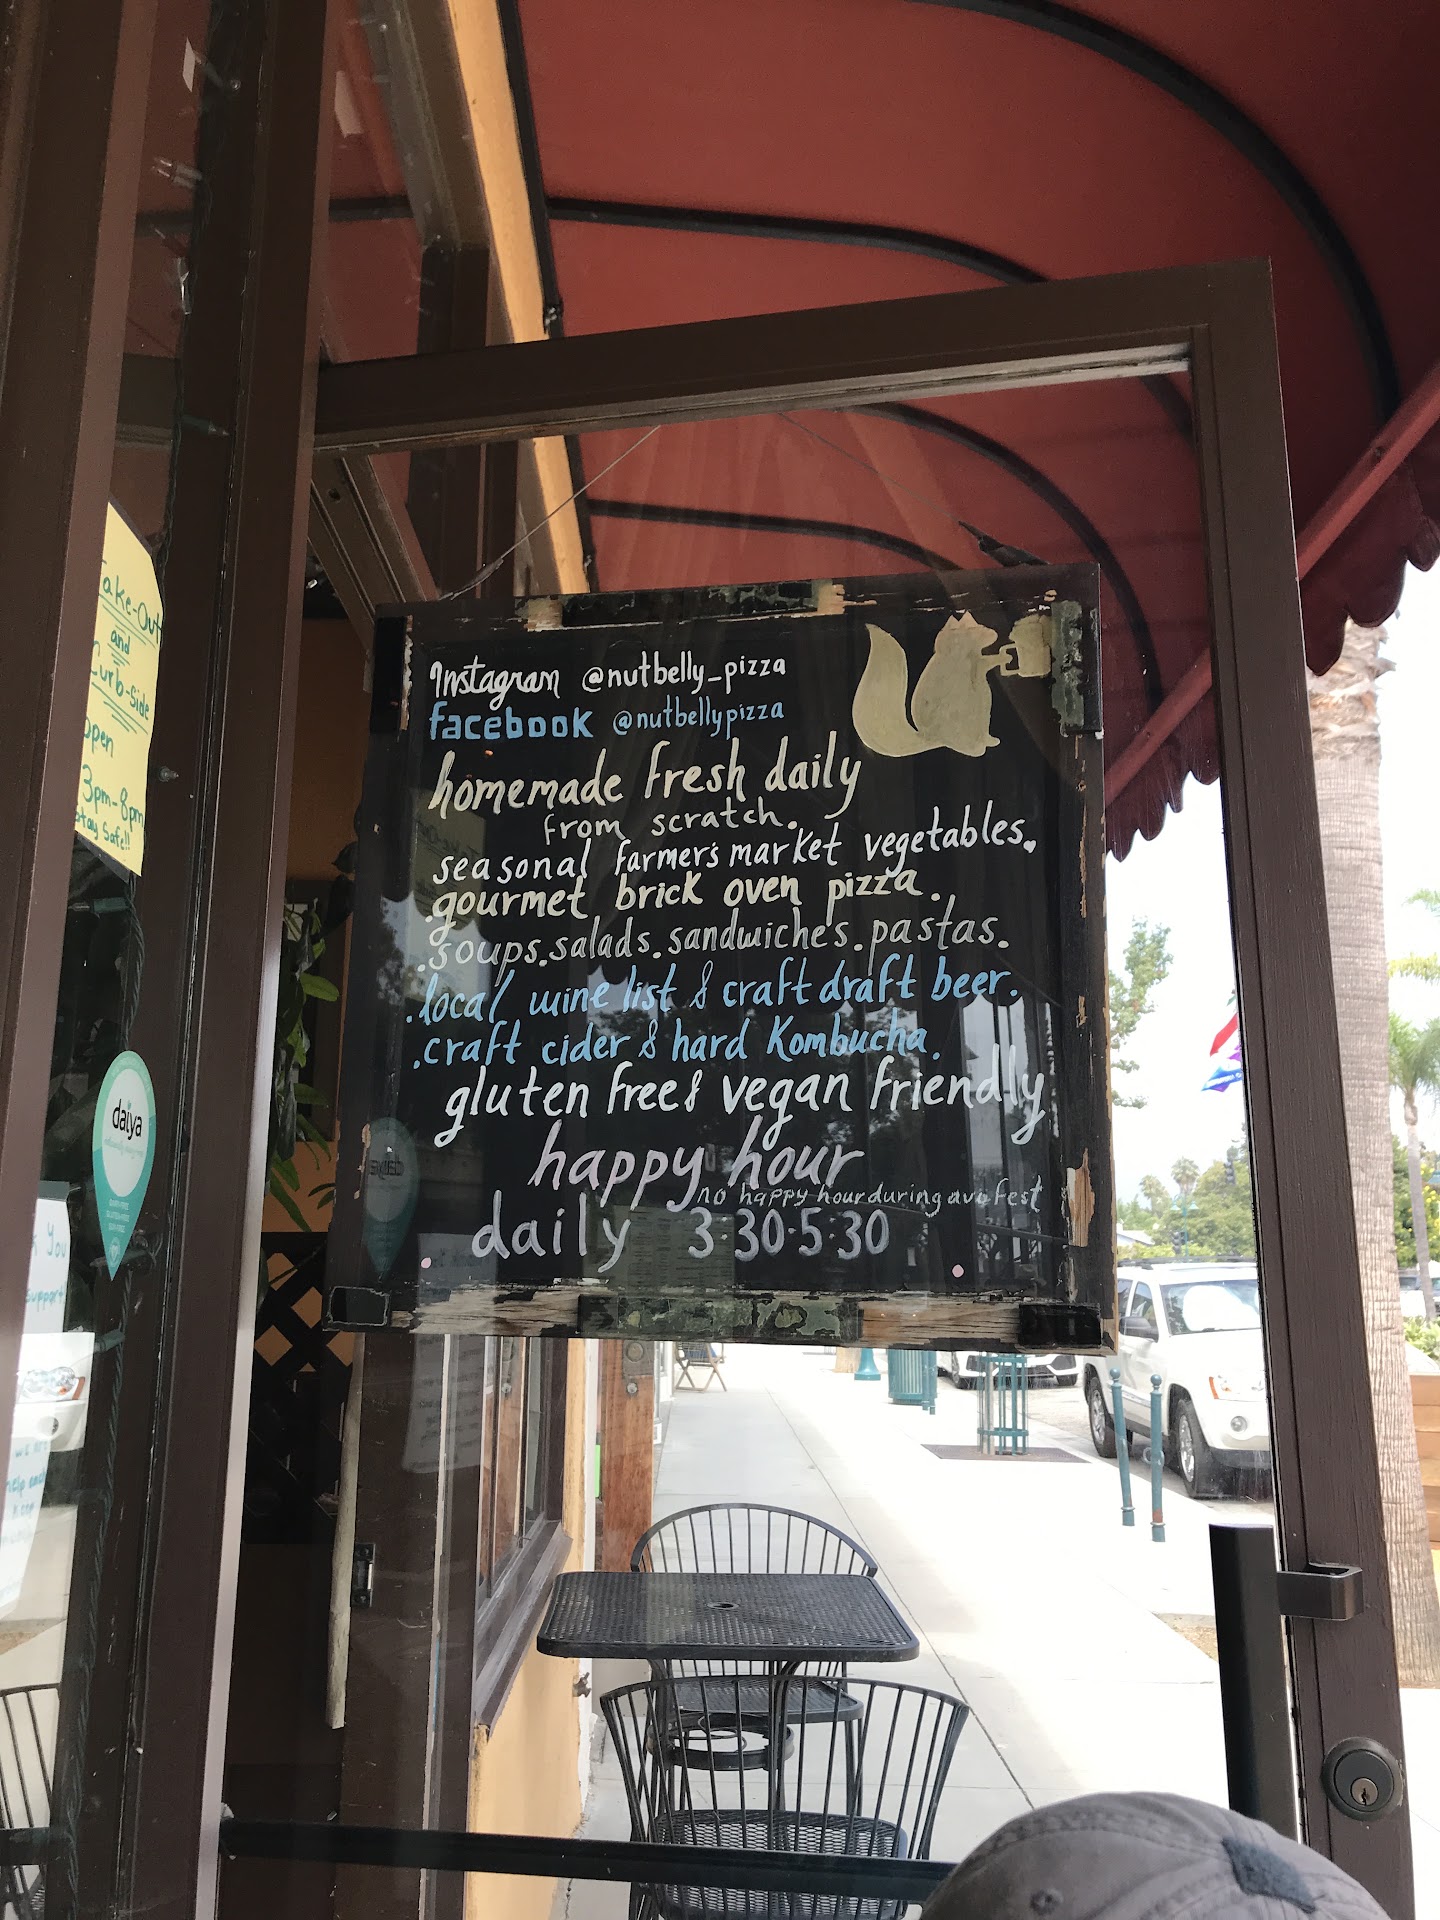 Instagram @nutbelly_pizza
facebook @nutbellypizza
homemade fresh daily
from scratch.
seasonal farmer's market vegetables.
.gourmet brick oven pizza.
.soups.salads.sandwiches.pastas.
.local wine list & craft draft beer.
.craft cider & hard Kombucha.
gluten free & vegan friendly
happy hour
no happy hour during avo fest
daily 3:30-5:30
Take-Out
and
Curb-side
Open
3pm-8pm
Stay Safe!!
daiya
you
support
we are
help